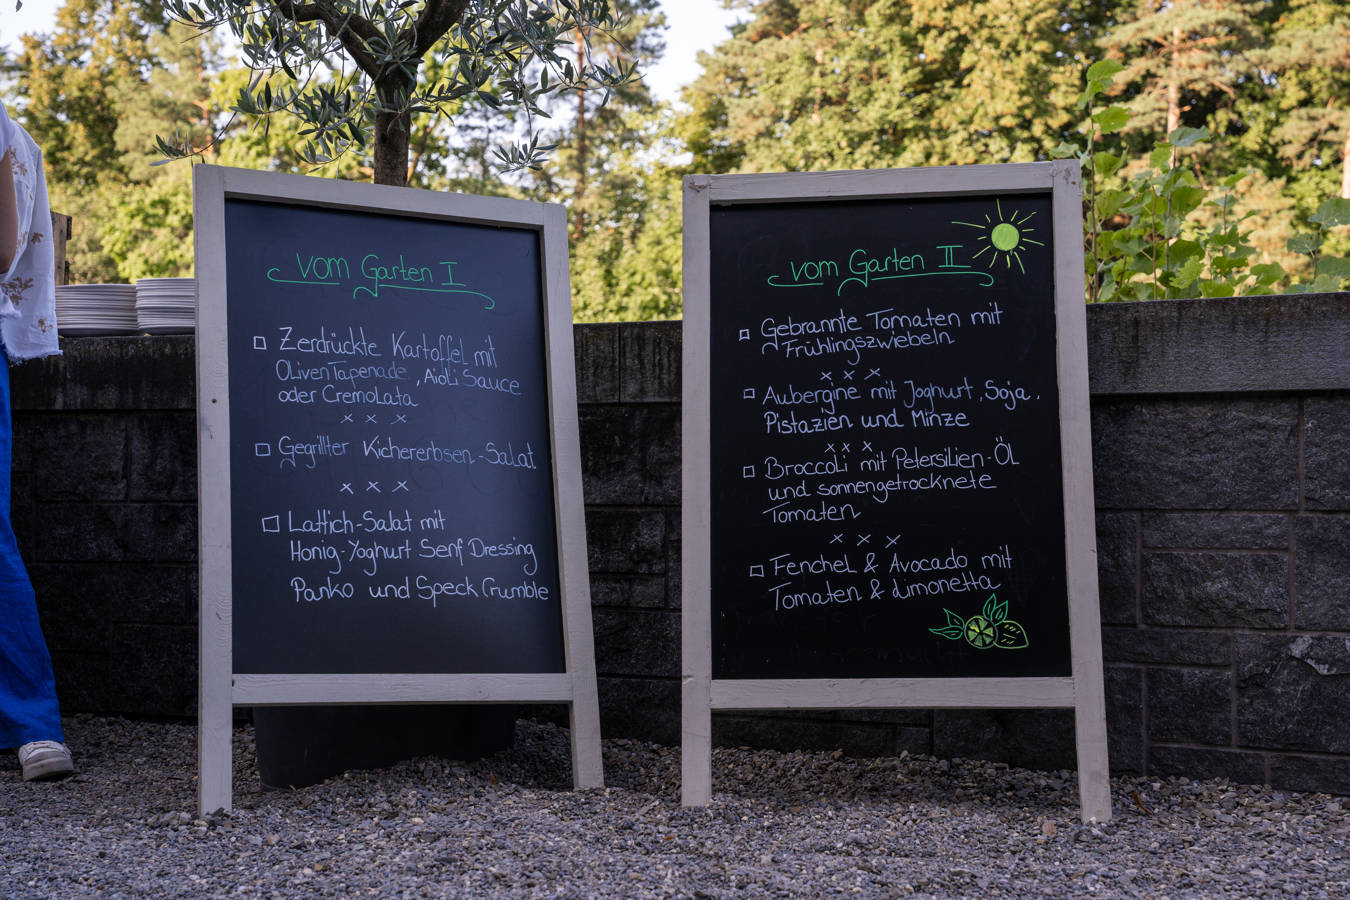 Vom Garten I
Zerdrückte Kartoffel mit
OlivenTapenade, Aioli Sauce
oder Cremolata
x x x
Gegrillter Kichererbsen-Salat
x x x
Lattich-Salat mit
Honig-Yoghurt Senf Dressing
Panko und Speck Crumble
Vom Garten II
Gebrannte Tomaten mit
Frühlingszwiebeln
x x x
Aubergine mit Joghurt, Soja,
Pistazien und Minze
x x x
Broccoli mit Petersilien-Öl
und sonnengetrocknete
Tomaten
x x x
Fenchel & Avocado mit
Tomaten & Limonetta